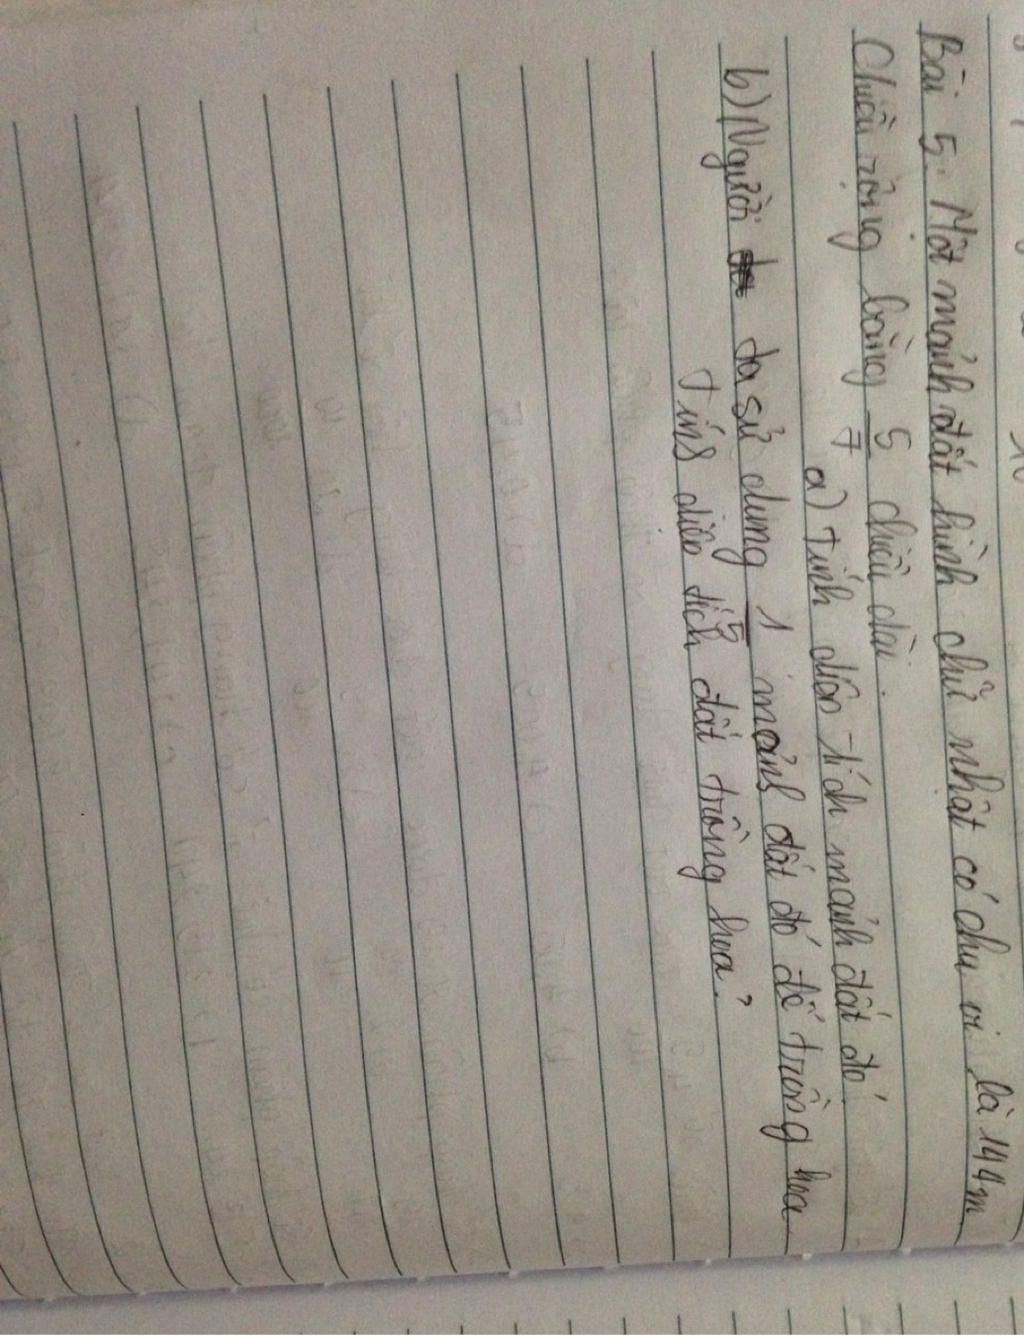 Bài 5: Một mảnh đất hình chữ nhật có chu vi là 144m
Chiều rộng bằng 5/7 chiều dài.
a) Tính diện tích mảnh đất đó.
b) Người ta sử dụng 1/5 mảnh đất đó để trồng hoa
Tính diện tích đất trồng hoa?